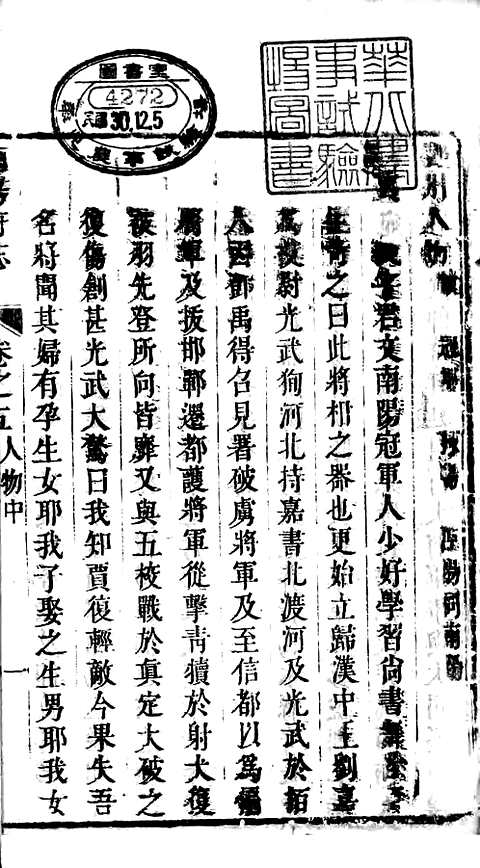 圖書室
4272
民國30.12.5
人物
字君文南陽冠軍人少好學習尚書
之曰此將相之器也更始立歸漢中王劉嘉
爲校尉光武狥河北持嘉書北渡河及光武於栢
人因鄧禹得召見署破虜將軍及至信都以爲偏
將軍及拔邯鄲遷都護將軍從擊青犢於射犬復
被羽先登所向皆靡又與五校戰於真定大破之
復傷創甚光武大驚曰我知賈復輕敵今果失吾
名將聞其婦有孕生女耶我子娶之生男耶我女
卷之五人物中
一